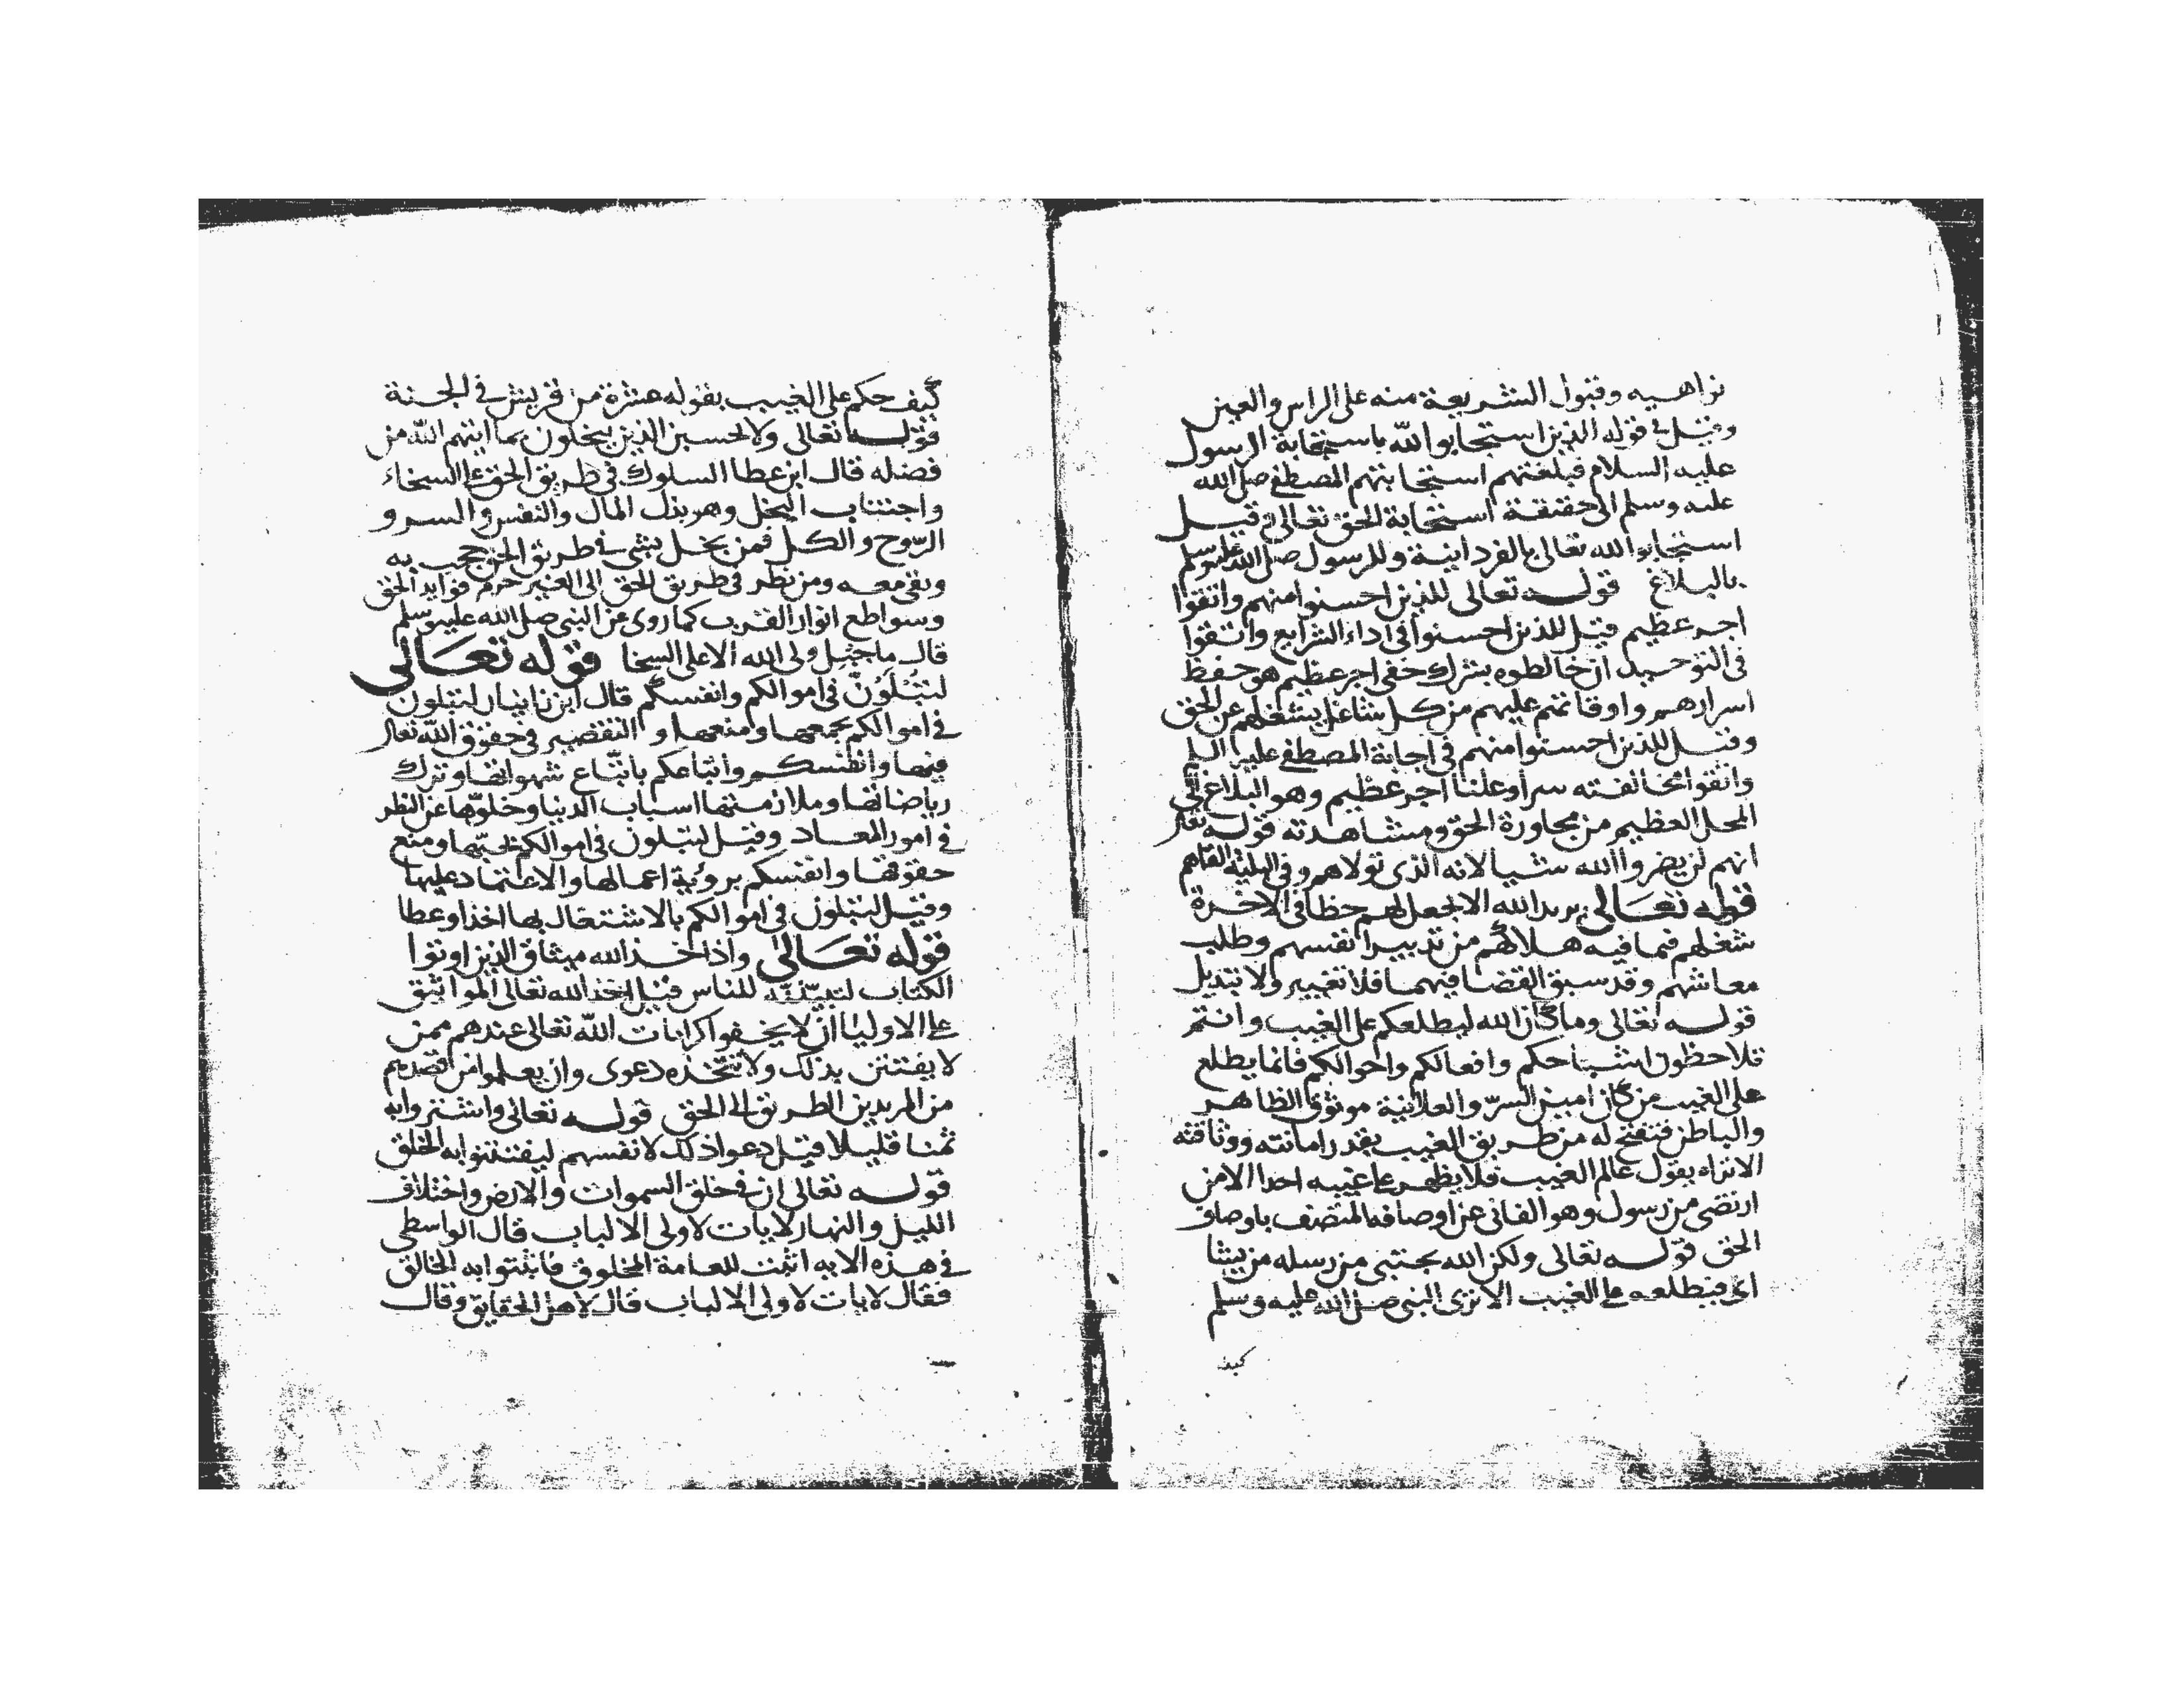 نواهيه وقبول الشريعة منه على الراس والعين
وقيل في قوله الذين استجابوا لله باستجابة الرسول
عليه السلام فبلغتهم استجابتهم المصطفى صلى الله
عليه وسلم الى حقيقة استجابة الحق تعالى قيل
استجابوا لله تعالى بالفردانية وللرسول صلى الله عليه وسلم
بالبلاغ قوله تعالى للذين احسنوا منهم واتقوا
اجر عظيم قيل للذين احسنوا في اداء الشرايع واتقوا
في التوحيد ان خالطوه بشرك خفى اجر عظيم هو حفظ
اسرارهم واوقاتهم عليهم من كل شاغل يشغلهم عن الحق
وقيل للذين احسنوا منهم في اجابة المصطفى عليه السلم
واتقوا مخالفته سرا وعلنا اجر عظيم وهو البلاغ الى
المحل العظيم من مجاورة الحق ومشاهدته قوله تعالى
انهم لن يضروا الله شيا لانه الذى تولاهم وفى البلية القاهم
قوله تعالى يريد الله الا يجعل لهم حظا فى الاخرة
شغلهم فيما فيه هلاكهم من تدبير انفسهم وطلب
معاشهم وقد سبق القضا فيهما فلا تغيير ولا تبديل
قوله تعالى وما كان الله ليطلعكم على الغيب وانتم
تلاحظون اشباحكم وافعالكم واحوالكم فانما يطلع
على الغيب من كان امين السر والعلانية موثوق الظاهر
والباطن فتفتح له من طريق الغيب بقدر امانته ووثاقته
الا تراه يقول عالم الغيب فلا يظهر على غيبه احدا الا من
ارتضى من رسول وهو الفانى عن اوصافه المتصف باوصاف
الحق قوله تعالى ولكن الله يجتبى من رسله من يشا
اى فيطلعه على الغيب الا ترى النبى صلى الله عليه وسلم
كيف
كيف حكم على الغيب بقوله عشرة من قريش في الجنة
قوله تعالى ولا تحسبن الذين يبخلون بما اتيهم الله من
فضله قال ابن عطا السلوك في طريق الحق على السخاء
واجتناب البخل وهو بذل المال والنفس والسر و
الروح والكل فمن بخل بشى في طريق الحق حجب به
وبقى معه ومن نظر في طريق الحق الى الغير حرم فوايد الحق
وسواطع انوار القرب كما روى عن النبى صلى الله عليه وسلم
قال ما جبل ولى الله الا على السخا قوله تعالى
لتبلون في اموالكم وانفسكم قال ابن زانيار لتبلون
في اموالكم بجمعها ومنعها والتقصير في حقوق الله تعالى
فيها وانفسكم واتباعكم باتباع شهواتها وترك
رياضاتها وملازمتها اسباب الدنيا وخلوها عن النظر
في امور المعاد وقيل لتبلون في اموالكم بحبها ومنع
حقوقها وانفسكم برؤية اعمالها والاعتماد عليها
وقيل لتبلون في اموالكم بالاشتغال بها اخذا وعطا
قوله تعالى واذ اخذ الله ميثاق الذين اوتوا
الكتاب لتبيننه للناس قيل اخذ الله تعالى المواثيق
على الاوليا ان لا يخفوا كرامات الله تعالى عندهم ممن
لا يفتتن بذلك ولا يتخذه دعوى وان يعلموا من قصدهم
من المريدين الطريق الى الحق قوله تعالى واشتروا به
ثمنا قليلا قيل دعوا ذلك لانفسهم ليفتتنوا به الخلق
قوله تعالى ان في خلق السموات والارض واختلاف
الليل والنهار لايات لاولى الالباب قال الواسطى
في هذه الايه اثبت للعامة المخلوق فاثبتوا به الخالق
فقال لايات لاولى الالباب قال لاهل الحقايق وقال